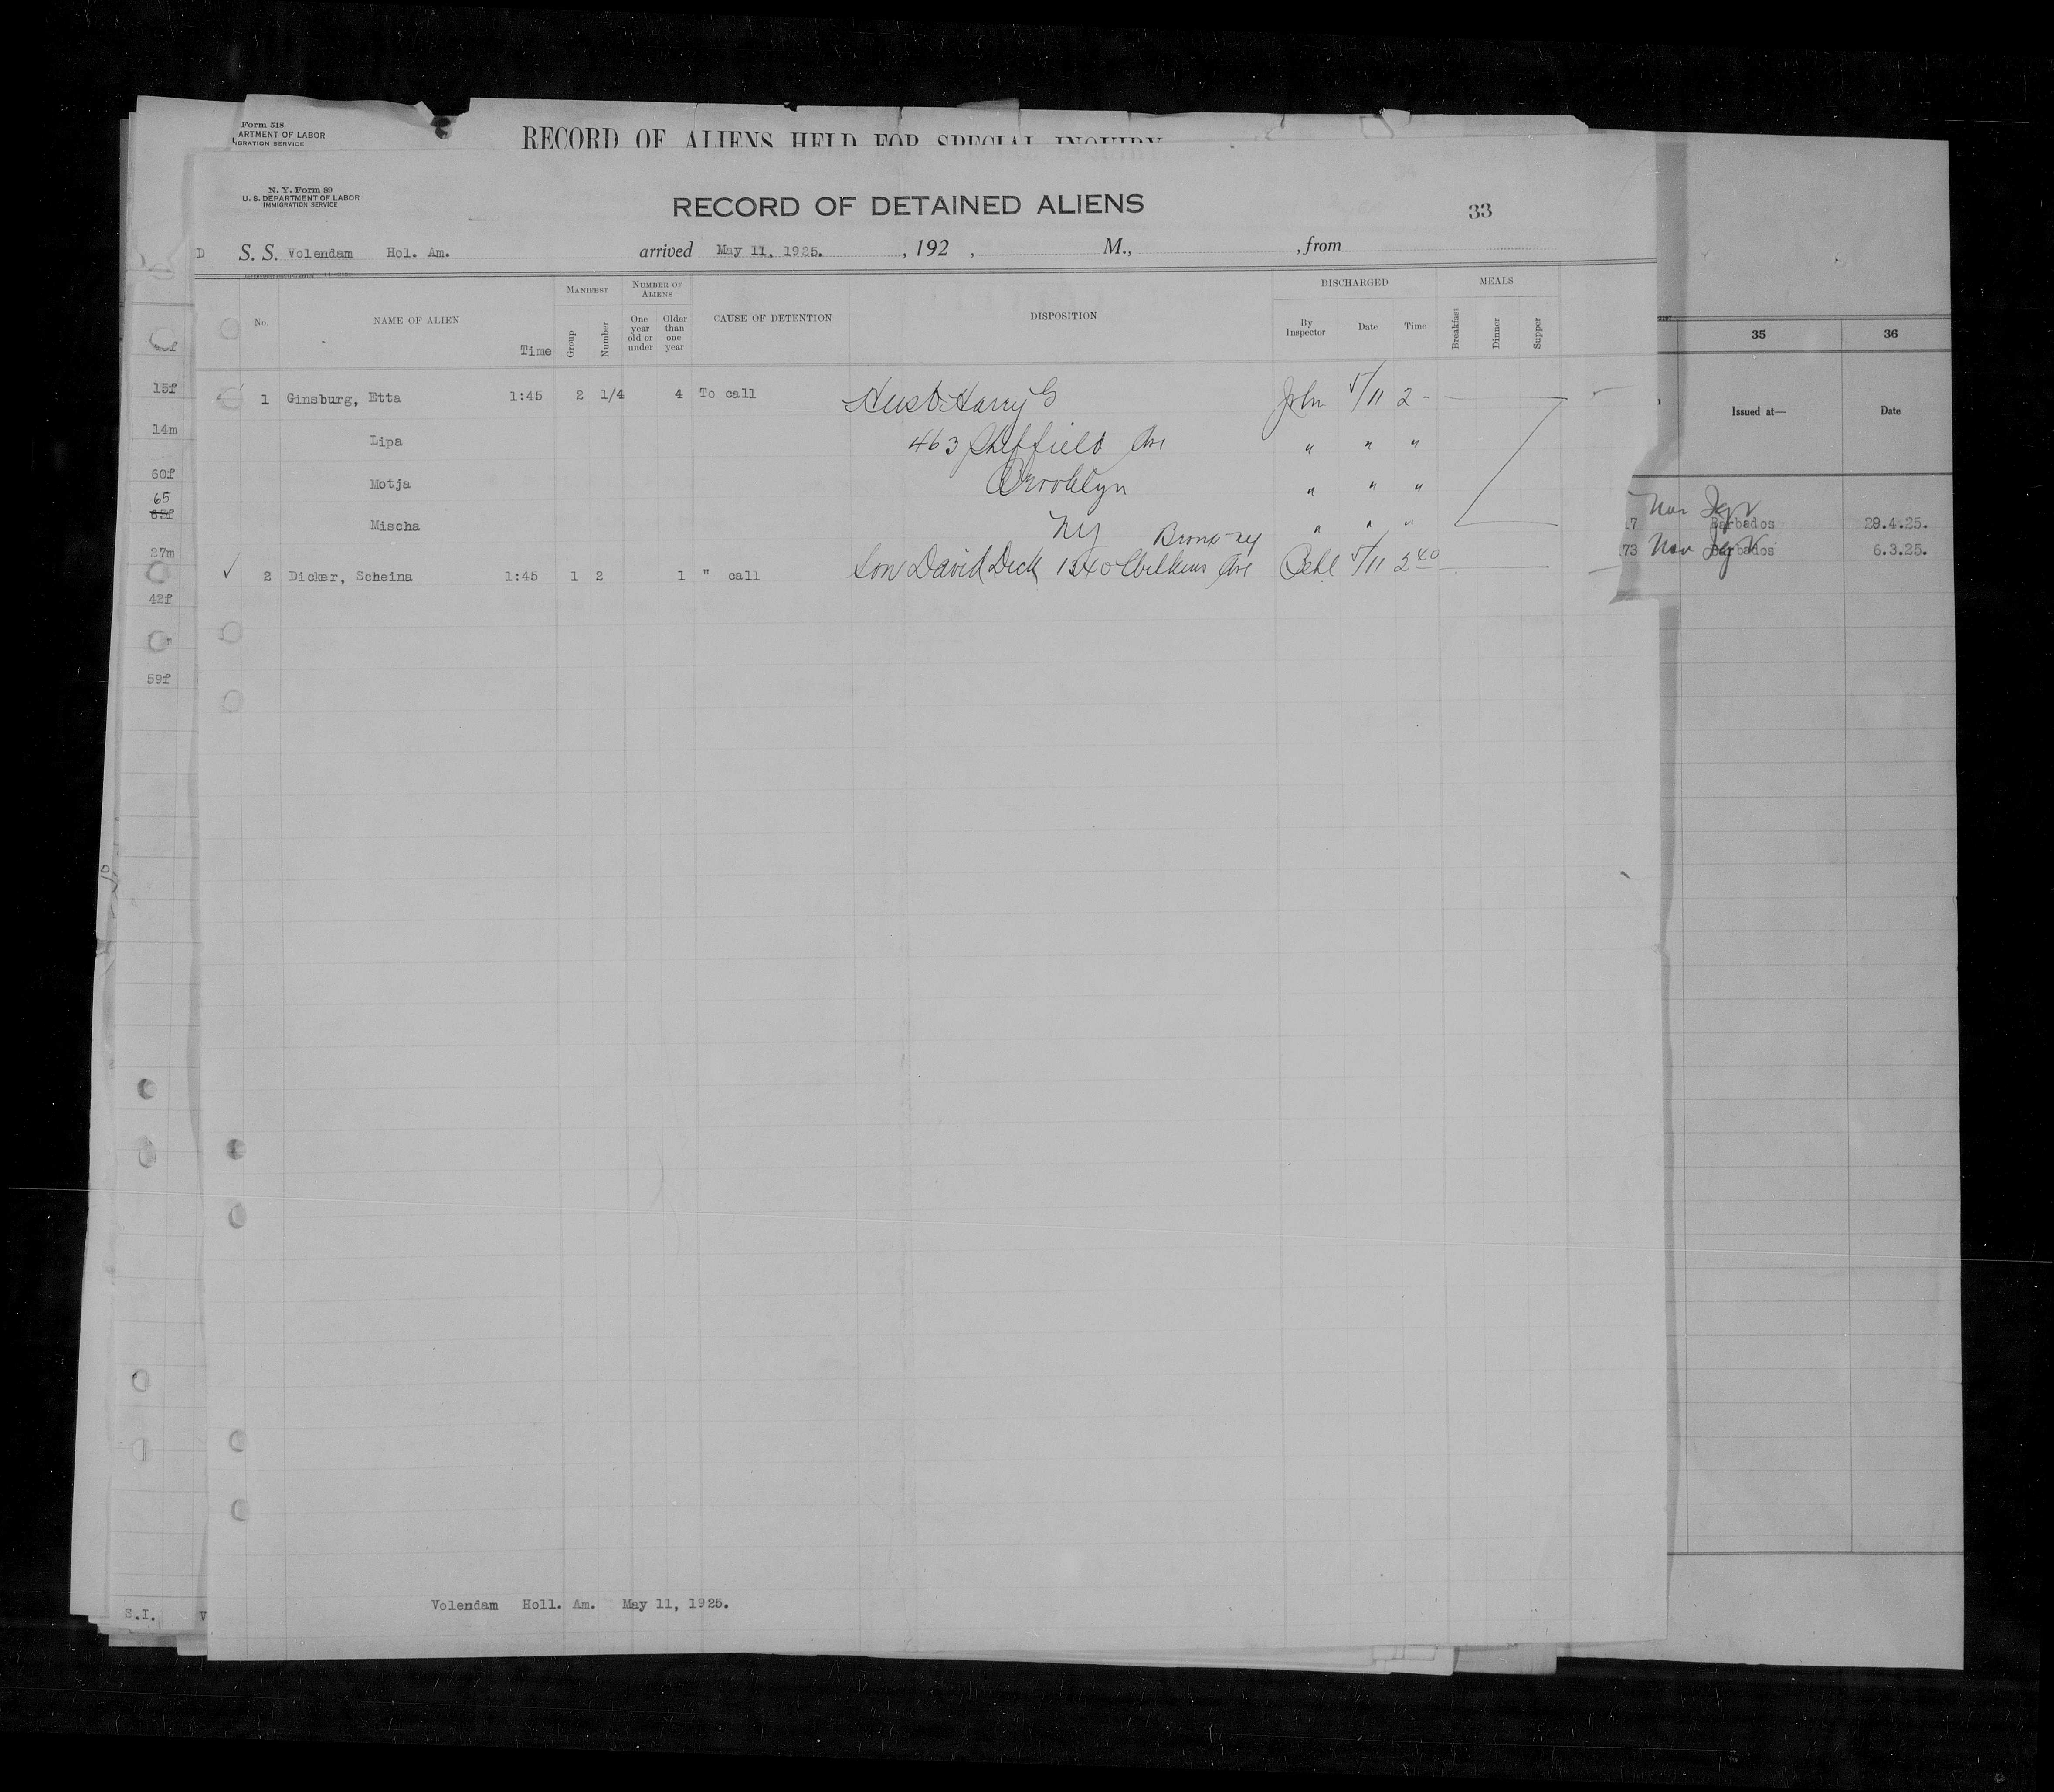 Form 518
ARTMENT OF LABOR
GRATION SERVICE
RECORD OF ALIENS HELD FOR SPECIAL INQUIRY
N. Y. Form 89
U. S. DEPARTMENT OF LABOR
IMMIGRATION SERVICE
RECORD OF DETAINED ALIENS
33
D S. S. Volendam Hol. Am. arrived May 11, 1925. , 192 , M., , from
No. NAME OF ALIEN Time MANIFEST Group Number NUMBER OF ALIENS One year old or under Older than one year CAUSE OF DETENTION DISPOSITION DISCHARGED By Inspector Date Time MEALS Breakfast Dinner Supper
1 Ginsburg, Etta 1:45 2 1/4 4 To call Husb Harry G John 5/11 2 -
Lipa 463 Sheffield Ave " " "
Motja Brooklyn " " "
Mischa NY " " "
Bronx NY
2 Dicker, Scheina 1:45 1 2 1 " call Son David Dick 1340 Wilkins Ave 5/11 2 40
15f
14m
60f
65
27m
42f
59f
35 36
Issued at— Date
17 Barbados 29.4.25.
73 Barbados 6.3.25.
S.I. V
Volendam Holl. Am. May 11, 1925.